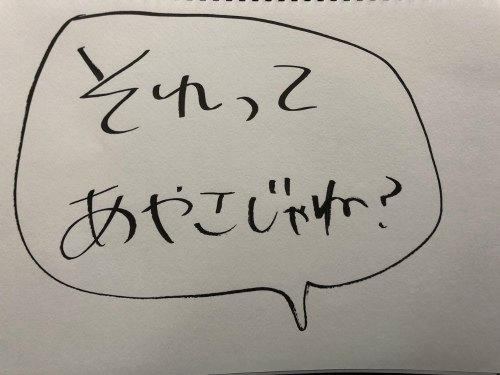 それって
あやこじゃね?